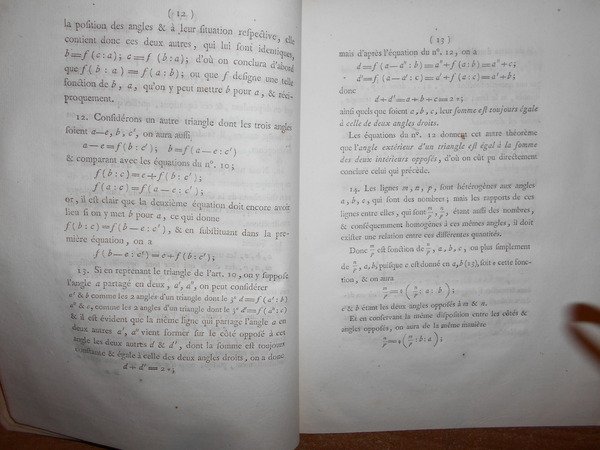 ( 12 )
la position des angles & à leur situation respective, elle
contient donc ces deux autres, qui lui sont identiques,
b=f(a:a); c=f(b:a), d'où on conclura d'abord
que f(b:a)=f(a:b); ou que f désigne une telle
fonction de b, a, qu'on y peut mettre b pour a, & réci-
proquement.
12. Considérons un autre triangle dont les trois angles
soient a—c, b, c', on aura aussi
a—c=f(b:c'); b=f(a—c:c')
& comparant avec les équations du n°. 10;
f(b:c)=c+f(b:c');
f(a:c)=f(a—c:c');
or, il est clair que la deuxième équation doit encore avoir
lieu si on y met b pour a, ce qui donne
f(b:c)=f(b—c:c'), & en substituant dans la pre-
mière équation, on a
f(b—c:c')=c+f(b:c');
13. Si en reprenant le triangle de l'art. 10, on y suppose
l'angle a partagé en deux, a', a", on peut considérer
a' & b comme les 2 angles d'un triangle dont le 3e d=f(a':b)
a" & c, comme les 2 angles d'un triangle dont le 3e d'=f(a":c)
& il est évident que la même ligne qui partage l'angle a en
deux autres a', a" vient former sur le côté opposé à cet
angle les deux autres d & d', dont la somme est toujours
constante & égale à celle des deux angles droits, on a donc
d+d'=2;
( 13 )
mais d'après l'équation du n°. 12, on a
d=f(a—a":b)=a"+f(a:b)=a"+c;
d'=f(a—a':c)=a'+f(a:c)=a'+b;
donc
d+d'=a+b+c=2;
ainsi quels que soient a, b, c, leur somme est toujours égale
à celle de deux angles droits.
Les équations du n°. 12 donnent cet autre théorème
que l'angle extérieur d'un triangle est égal à la somme
des deux intérieurs opposés, d'où on eût pu directement
conclure celui qui précède.
14. Les lignes m, n, p, sont hétérogènes aux angles
a, b, c, qui sont des nombres, mais les rapports de ces
lignes entre elles, qui sont étant aussi des nombres,
& conséquemment homogènes à ces mêmes angles, il doit
exister une relation entre ces différentes quantités.
Donc est fonction de a, b, c, ou plus simplement
de a, b, puisque c est donné en a, b (13), soit cette fonc-
tion, & on aura
& étant les deux angles opposés à
Et en conservant la même disposition entre les côtés &
angles opposés, on aura de la même manière